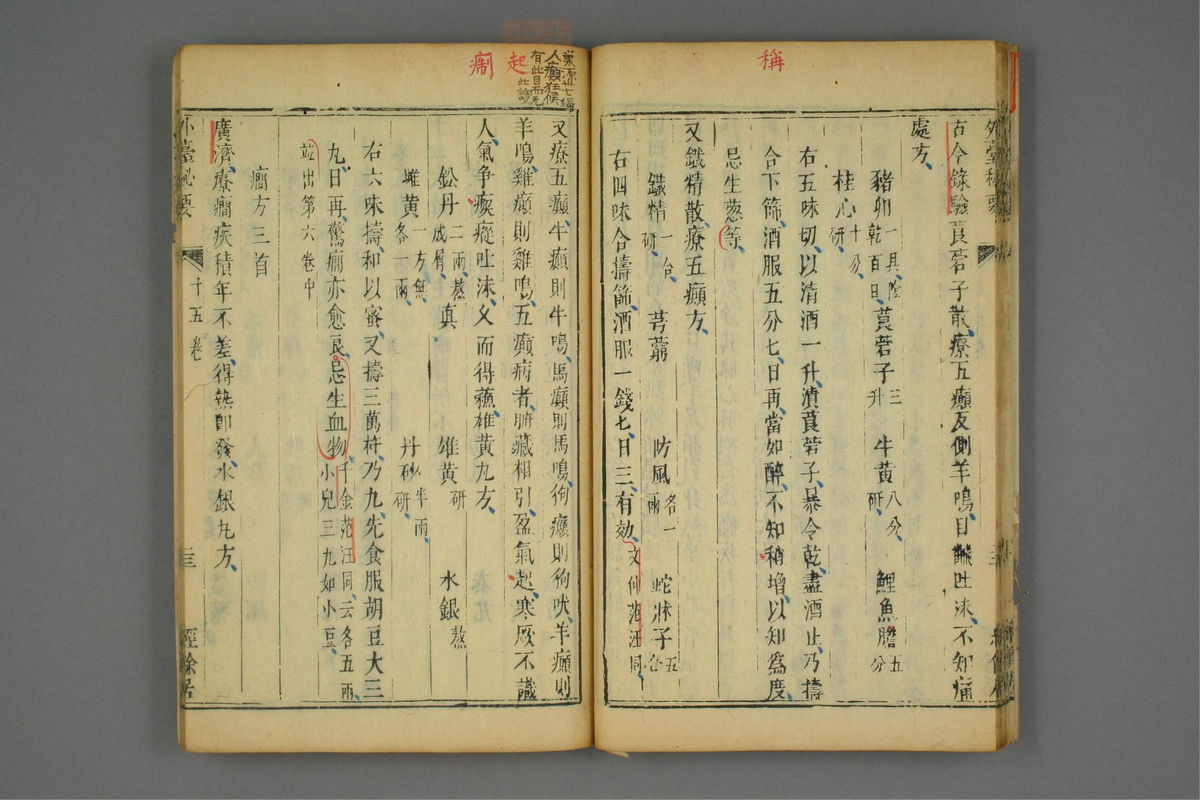 稱
外臺秘要
古今錄驗莨菪子散、療五癲、反側羊鳴、目翻吐沫、不知痛
處方、
豬卵一具、陰乾百日、 莨菪子三升 牛黃八分、研、 鯉魚膽五分
桂心十分、研、
右五味切、以清酒一升、漬莨菪子、暴令乾、盡酒止、乃擣
合下篩、酒服五分匕、日再、當如醉、不知稍增、以知為度、
忌生葱等、
又鐵精散、療五癲方、
鐵精一合、研、 芎藭 防風各一兩 蛇牀子五合
右四味合擣篩、酒服一錢匕、日三、有効、文仲范汪同、
巢源卅七婦
人癲狂候
有此目而无
此證
起
痸
又療五癲、牛癲則牛鳴、馬癲則馬鳴、狗癲則狗吠、羊癲則
羊鳴、雞癲則雞鳴、五癲病者、腑藏相引、盈氣起、寒厥不識
人、氣争瘈瘲吐沫、乂而得蘓、雄黃丸方、
鈆丹二兩、熬成屑、 真 雄黃研 水銀熬
雌黃一方無各一兩、 丹砂半兩研、
右六味擣、和以蜜、又擣三萬杵、乃丸、先食服胡豆大三
丸、日再、驚癎亦愈、良、忌生血物、千金范汪同、云各五兩、小兒三丸如小豆、
並出第六卷中
癎方三首
廣濟、療癎疾積年不差、得熱即發、水銀丸方、
外臺秘要
十五卷
三三
經餘居